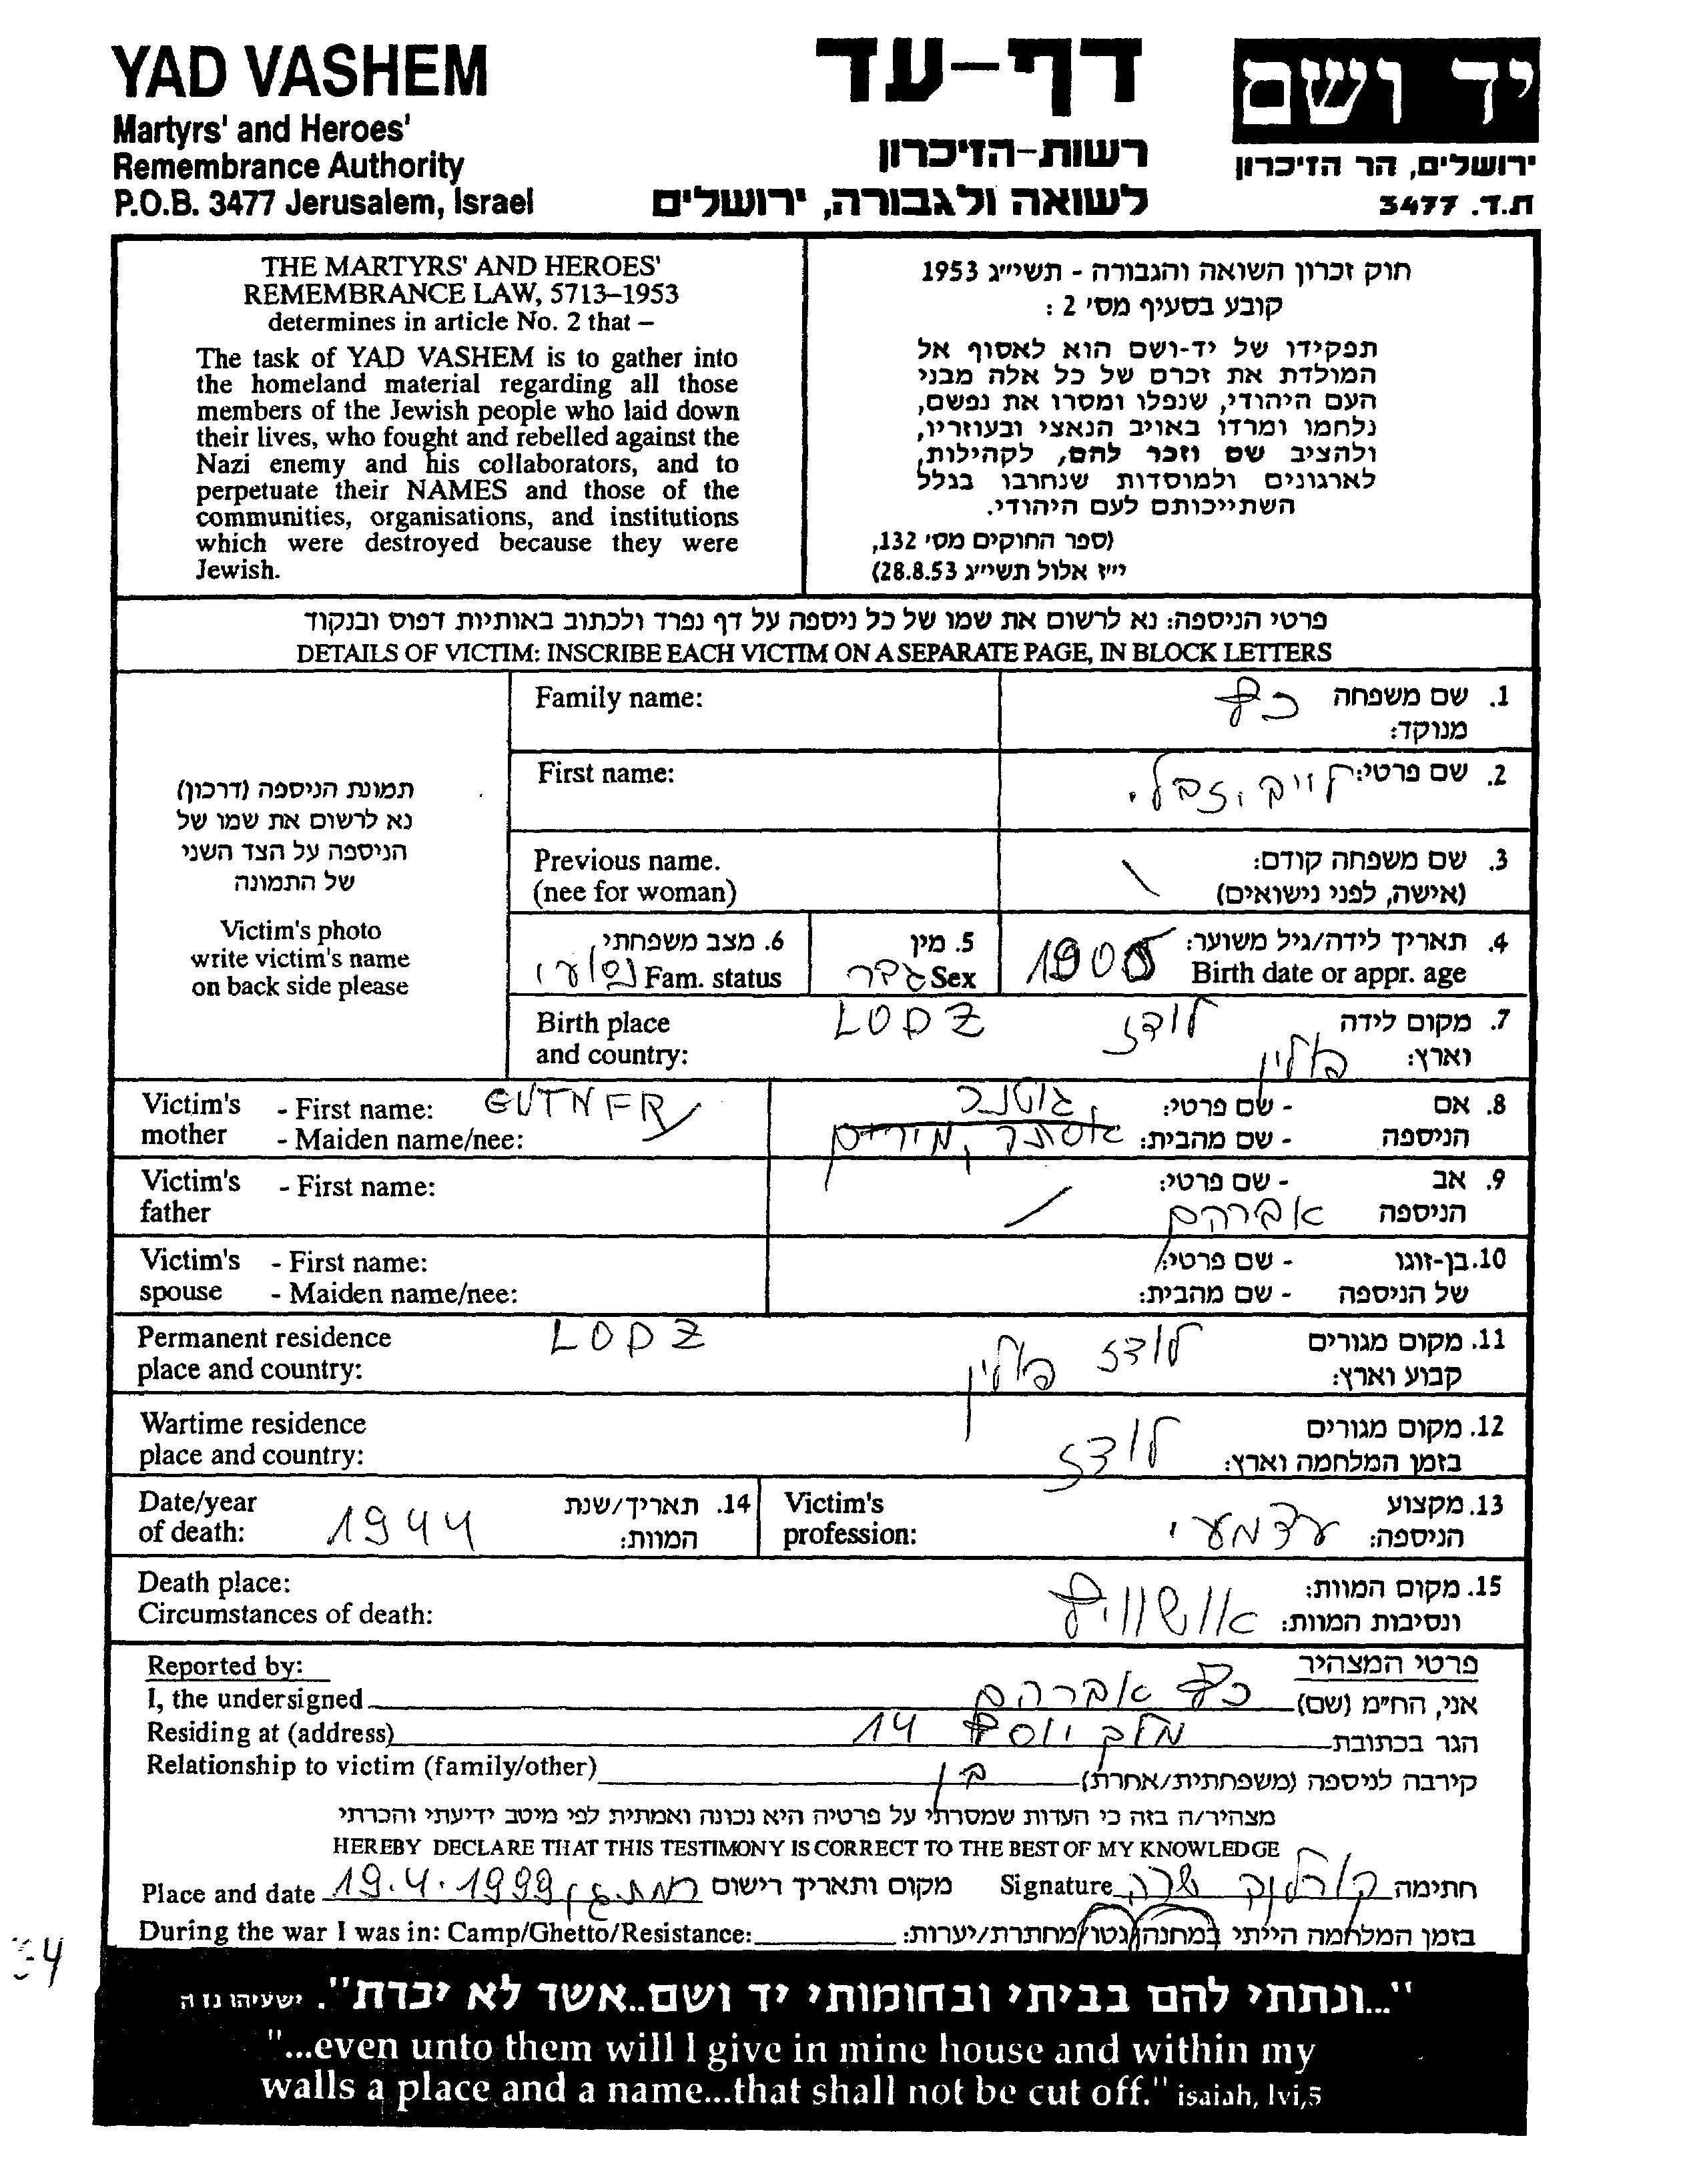 YAD VASHEM
Martyrs' and Heroes'
Remembrance Authority
P.O.B. 3477 Jerusalem, Israel
דף-עד
רשות-הזיכרון
לשואה ולגבורה, ירושלים
יד ושם
ירושלים, הר הזיכרון
ת.ד. 3477
THE MARTYRS' AND HEROES'
REMEMBRANCE LAW, 5713–1953
determines in article No. 2 that –
The task of YAD VASHEM is to gather into
the homeland material regarding all those
members of the Jewish people who laid down
their lives, who fought and rebelled against the
Nazi enemy and his collaborators, and to
perpetuate their NAMES and those of the
communities, organisations, and institutions
which were destroyed because they were
Jewish.
חוק זכרון השואה והגבורה - תשי״ג 1953
קובע בסעיף מס׳ 2 :
תפקידו של יד-ושם הוא לאסוף אל
המולדת את זכרם של כל אלה מבני
העם היהודי, שנפלו ומסרו את נפשם,
נלחמו ומרדו באויב הנאצי ובעוזריו,
ולהציב שם וזכר להם, לקהילות,
לארגונים ולמוסדות שנחרבו בגלל
השתייכותם לעם היהודי.
(ספר החוקים מס׳ 132,
י״ז אלול תשי״ג 28.8.53)
פרטי הניספה: נא לרשום את שמו של כל ניספה על דף נפרד ולכתוב באותיות דפוס ובנקוד
DETAILS OF VICTIM: INSCRIBE EACH VICTIM ON A SEPARATE PAGE, IN BLOCK LETTERS
תמונת הניספה (דרכון)
נא לרשום את שמו של
הניספה על הצד השני
של התמונה
Victim's photo
write victim's name
on back side please
Family name:
1. שם משפחה כץ
מנוקד:
First name:
2. שם פרטי: לייב
Previous name.
(nee for woman)
3. שם משפחה קודם:
(אישה, לפני נישואים)
4. תאריך לידה/גיל משוער:
Birth date or appr. age
5. מין
Sex גבר
6. מצב משפחתי
Fam. status
Birth place LODZ
and country:
7. מקום לידה לודז
וארץ: פולין
Victim's - First name: GUTNER
mother - Maiden name/nee:
8. אם - שם פרטי: גוטנר
הניספה - שם מהבית: אסתר, מירים
Victim's - First name:
father
9. אב - שם פרטי:
הניספה אברהם
Victim's - First name:
spouse - Maiden name/nee:
10. בן-זוגו - שם פרטי:
של הניספה - שם מהבית:
Permanent residence LODZ
place and country:
11. מקום מגורים לודז פולין
קבוע וארץ:
Wartime residence
place and country:
12. מקום מגורים לודז
בזמן המלחמה וארץ:
Date/year
of death: 1944
14. תאריך/שנת
המוות:
Victim's
profession:
13. מקצוע
הניספה: עצמאי
Death place:
Circumstances of death:
15. מקום המוות:
ונסיבות המוות: אושוויץ
Reported by:
פרטי המצהיר
I, the undersigned כץ אברהם אני, הח״מ (שם)
Residing at (address) 14 הגר בכתובת
Relationship to victim (family/other) בן קירבה לניספה (משפחתית/אחרת)
מצהיר/ה בזה כי העדות שמסרתי על פרטיה היא נכונה ואמתית לפי מיטב ידיעתי והכרתי
HEREBY DECLARE THAT THIS TESTIMONY IS CORRECT TO THE BEST OF MY KNOWLEDGE
Place and date 19.4.1999 מקום ותאריך רישום Signature שרה חתימה
During the war I was in: Camp/Ghetto/Resistance: בזמן המלחמה הייתי במחנה/גטו/מחתרת/יערות:
"...ונתתי להם בביתי ובחומותי יד ושם..אשר לא יכרת". ישעיהו נו ה
"...even unto them will I give in mine house and within my
walls a place and a name...that shall not be cut off." isaiah, lvi,5